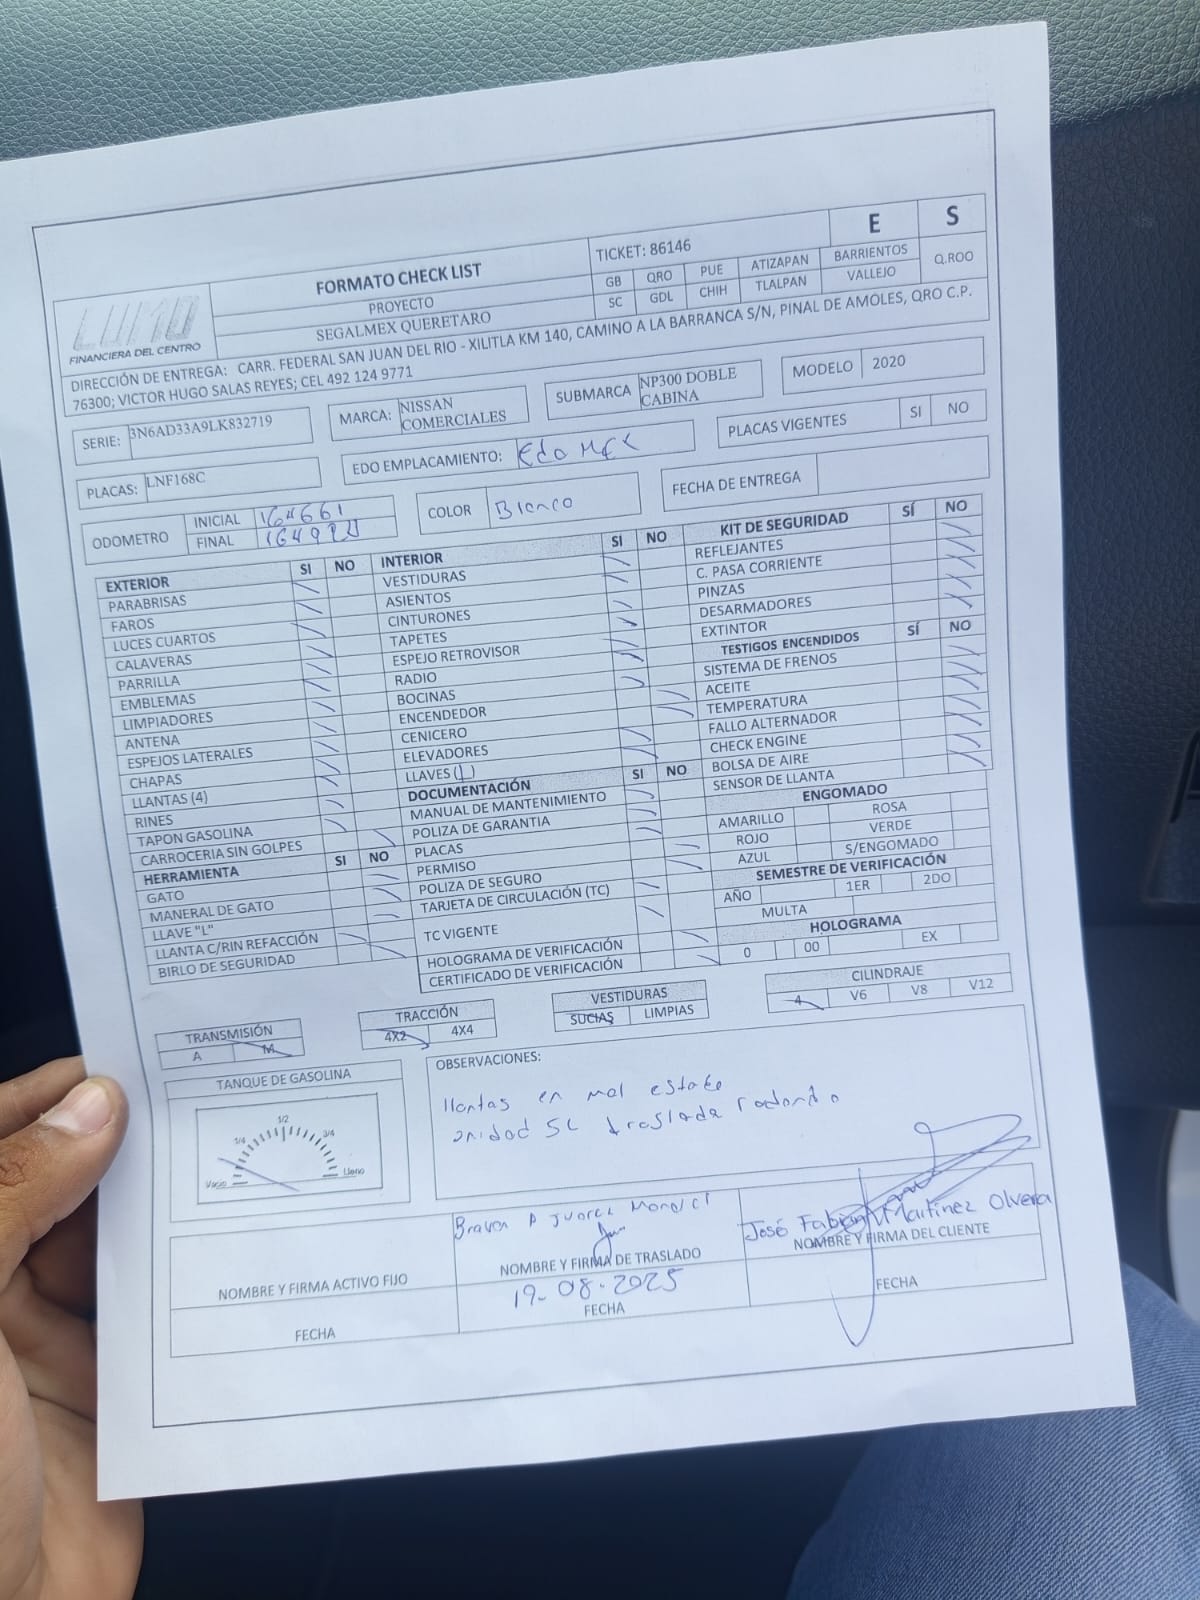 E S
TICKET: 86146
FORMATO CHECK LIST
GB QRO PUE ATIZAPAN BARRIENTOS Q.ROO
PROYECTO
SC GDL CHIH TLALPAN VALLEJO
SEGALMEX QUERETARO
LUMO
FINANCIERA DEL CENTRO
DIRECCIÓN DE ENTREGA: CARR. FEDERAL SAN JUAN DEL RIO - XILITLA KM 140, CAMINO A LA BARRANCA S/N, PINAL DE AMOLES, QRO C.P.
76300; VICTOR HUGO SALAS REYES; CEL 492 124 9771
SERIE: 3N6AD33A9LK832719
MARCA: NISSAN COMERCIALES
SUBMARCA NP300 DOBLE CABINA
MODELO 2020
PLACAS: LNF168C
EDO EMPLACAMIENTO: Edo Mex
PLACAS VIGENTES SI NO
ODOMETRO INICIAL 164661
FINAL
COLOR Blanco
FECHA DE ENTREGA
EXTERIOR SI NO
PARABRISAS
FAROS
LUCES CUARTOS
CALAVERAS
PARRILLA
EMBLEMAS
LIMPIADORES
ANTENA
ESPEJOS LATERALES
CHAPAS
LLANTAS (4)
RINES
TAPON GASOLINA
CARROCERIA SIN GOLPES
HERRAMIENTA SI NO
GATO
MANERAL DE GATO
LLAVE "L"
LLANTA C/RIN REFACCIÓN
BIRLO DE SEGURIDAD
INTERIOR SI NO
VESTIDURAS
ASIENTOS
CINTURONES
TAPETES
ESPEJO RETROVISOR
RADIO
BOCINAS
ENCENDEDOR
CENICERO
ELEVADORES
LLAVES (1)
DOCUMENTACIÓN SI NO
MANUAL DE MANTENIMIENTO
POLIZA DE GARANTIA
PLACAS
PERMISO
POLIZA DE SEGURO
TARJETA DE CIRCULACIÓN (TC)
TC VIGENTE
HOLOGRAMA DE VERIFICACIÓN
CERTIFICADO DE VERIFICACIÓN
KIT DE SEGURIDAD SÍ NO
REFLEJANTES
C. PASA CORRIENTE
PINZAS
DESARMADORES
EXTINTOR
TESTIGOS ENCENDIDOS SÍ NO
SISTEMA DE FRENOS
ACEITE
TEMPERATURA
FALLO ALTERNADOR
CHECK ENGINE
BOLSA DE AIRE
SENSOR DE LLANTA
ENGOMADO
AMARILLO ROSA
ROJO VERDE
AZUL S/ENGOMADO
SEMESTRE DE VERIFICACIÓN
AÑO 1ER 2DO
MULTA
HOLOGRAMA
0 00 EX
TRANSMISIÓN
A M
TRACCIÓN
4X2 4X4
VESTIDURAS
SUCIAS LIMPIAS
CILINDRAJE
4 V6 V8 V12
TANQUE DE GASOLINA
1/4 1/2 3/4
Vacio Lleno
OBSERVACIONES:
llantas en mal estado
unidad se traslada rodando
NOMBRE Y FIRMA ACTIVO FIJO
FECHA
Juarez
NOMBRE Y FIRMA DE TRASLADO
19-08-2025
FECHA
José Fabian Martinez Olvera
NOMBRE Y FIRMA DEL CLIENTE
FECHA